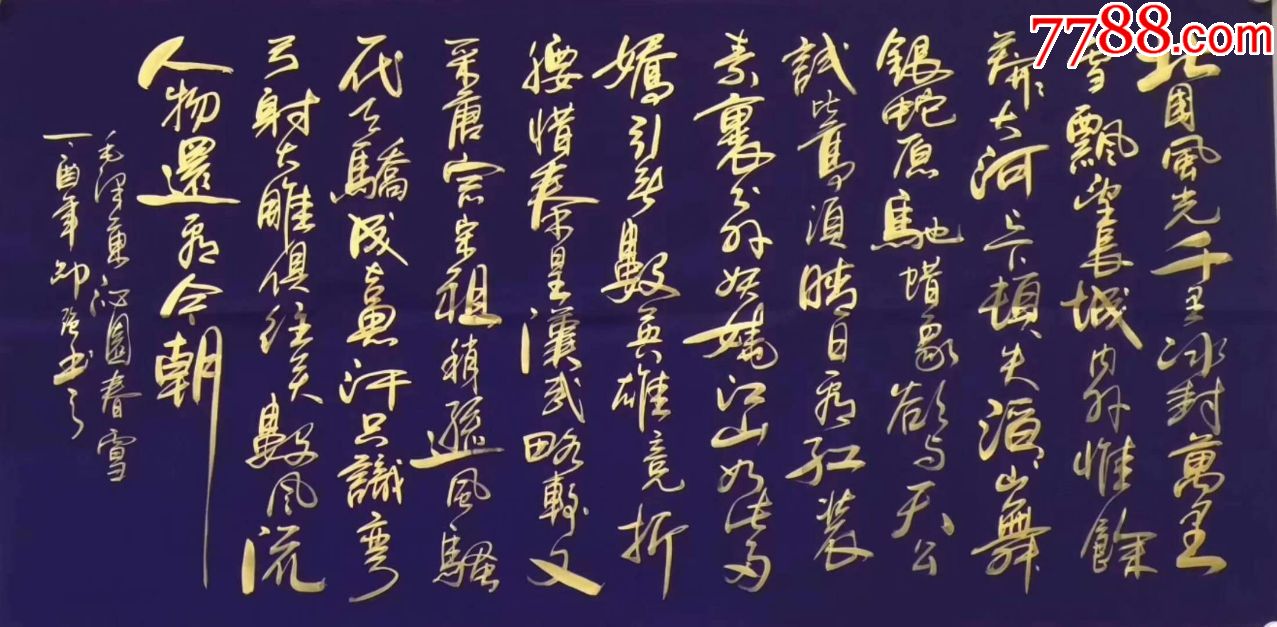 7788.com
北國風光千里冰封萬里
雪飄望長城内外惟餘
莽々大河上下頓失滔々山舞
銀蛇原馳蜡象欲与天公
試比髙須晴日看紅裝
素裹分外妖嬈江山如此多
嬌引無數英雄竞折
腰惜秦皇漢武略輸文
采唐宗宋祖稍遜風騷
一代天驕成吉思汗只識彎
弓射大雕俱往矣數風流
人物還看今朝
毛澤東沁園春雪
丁酉年书之